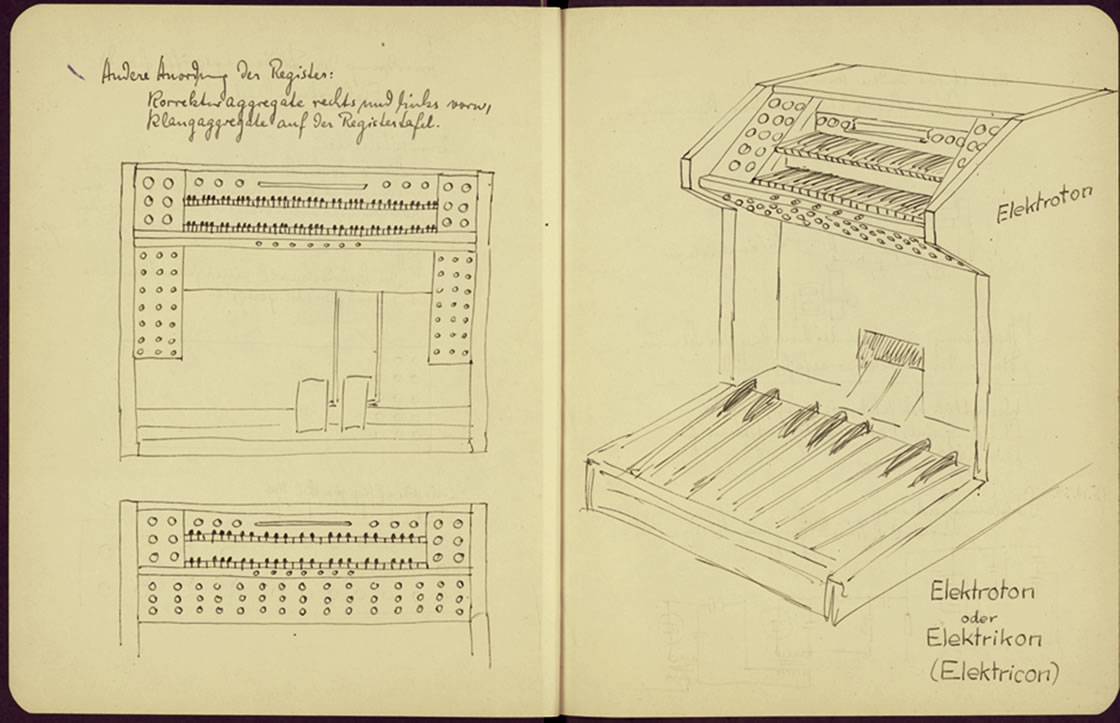 Andere Anordnung der Register:
Korrekturaggregate rechts und links vorn,
Klangaggregate auf der Registertafel.
Elektroton
Elektroton
oder
Elektrikon
(Elektricon)